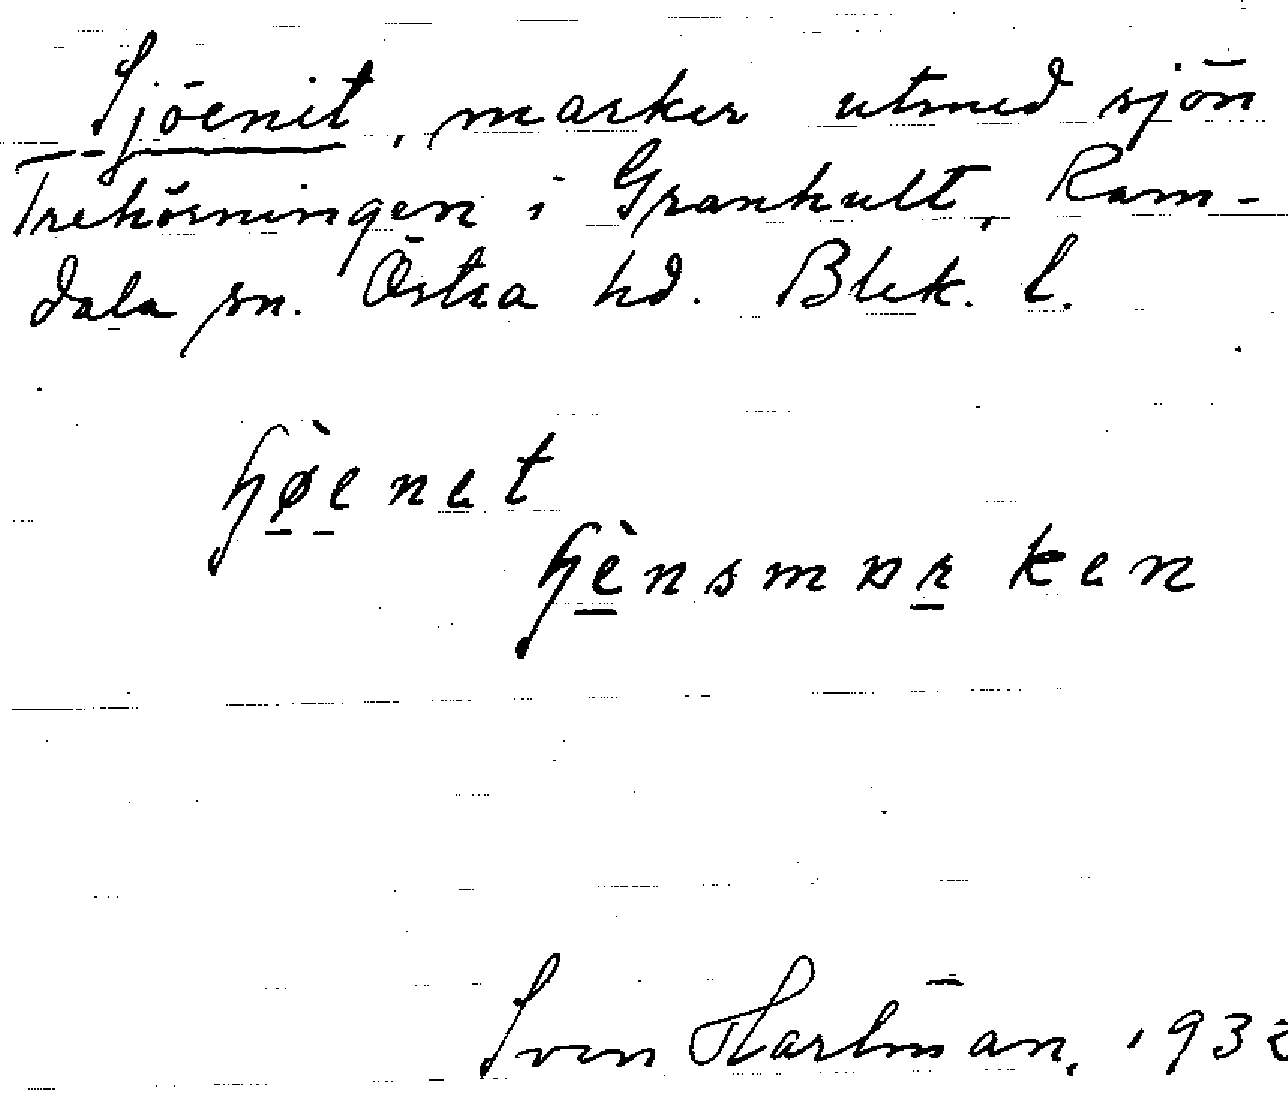 Sjöenit, marker utmed sjön
Trehörningen i Granhult, Ram-
dala sn. Östra hd. Blek. l.
Sven Hartman, 193